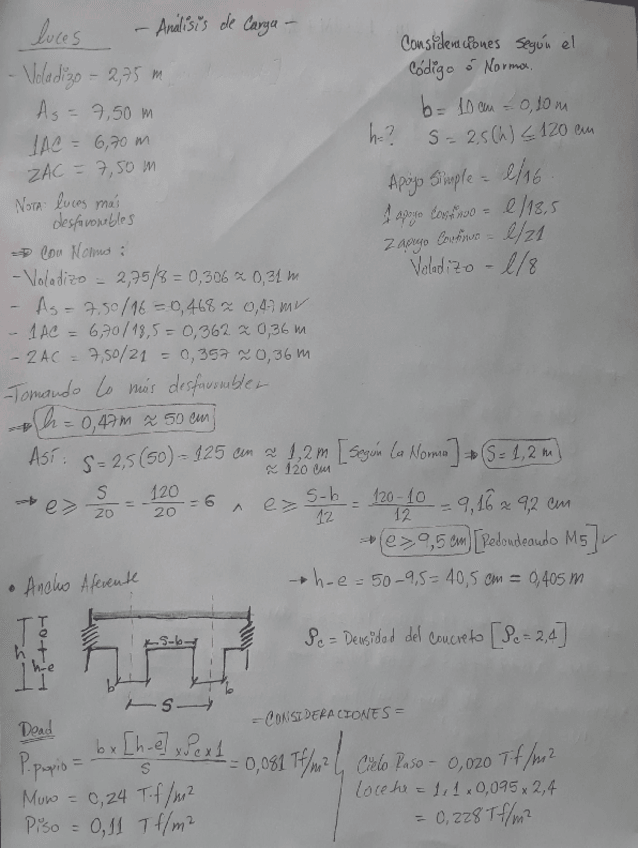 - Análisis de Carga -
luces
- Voladizo - 2,75 m
As = 7,50 m
1AC = 6,70 m
2AC = 7,50 m
Nota: luces más
desfavorables
⇒ Con Norma:
- Voladizo = 2,75/8 = 0,306 ≈ 0,31 m
- As = 7.50/16 = 0,468 ≈ 0,47 m✓
- 1AC = 6,70/18,5 = 0,362 ≈ 0,36 m
- 2AC = 7,50/21 = 0,357 ≈ 0,36 m
Consideraciones Según el
Código ó Norma.
b = 10 cm = 0,10 m
h=? S = 2,5(h) ≤ 120 cm
Apoyo Simple = l/16
1 apoyo Continuo = l/18,5
2 apoyo Continuo = l/21
Voladizo - l/8
- Tomando lo más desfavorable
⇒ h = 0,47m ≈ 50 cm
Así: S = 2,5(50) = 125 cm ≈ 1,2 m [Según La Norma] ⇒ S = 1,2 m
≈ 120 cm
⇒ e ≥ S/20 = 120/20 = 6 ∧ e ≥ S-b/12 = 120-10/12 = 9,16 ≈ 9,2 cm
⇒ e ≥ 9,5 cm [Redondeando M5] ✓
• Ancho Aferente
→ h-e = 50-9,5 = 40,5 cm = 0,405 m
h e h-e S-b b b S
ρc = Densidad del Concreto [ρc = 2,4]
= CONSIDERACIONES =
Dead
P.propio = b x [h-e] x ρc x 1/S = 0,081 Tf/m²
Muro = 0,24 T.f/m²
Piso = 0,11 Tf/m²
Cielo Raso - 0,020 T.f/m²
Loceta = 1x1x0,095x2,4
= 0,228 Tf/m²